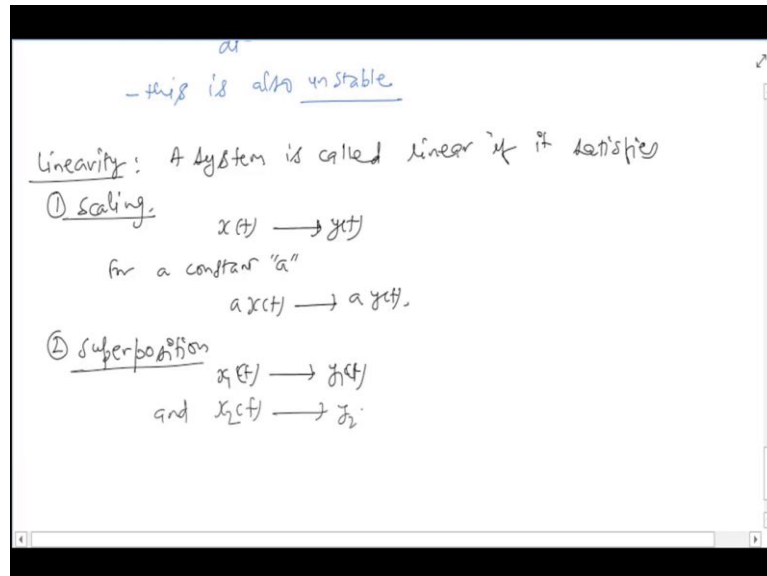 - this is also unstable
Linearity: A system is called linear if it satisfies
① Scaling.
x(t) ⟶ y(t)
for a constant "a"
a x(t) ⟶ a y(t).
② Superposition
x₁(t) ⟶ y₁(t)
and x₂(t) ⟶ y₂